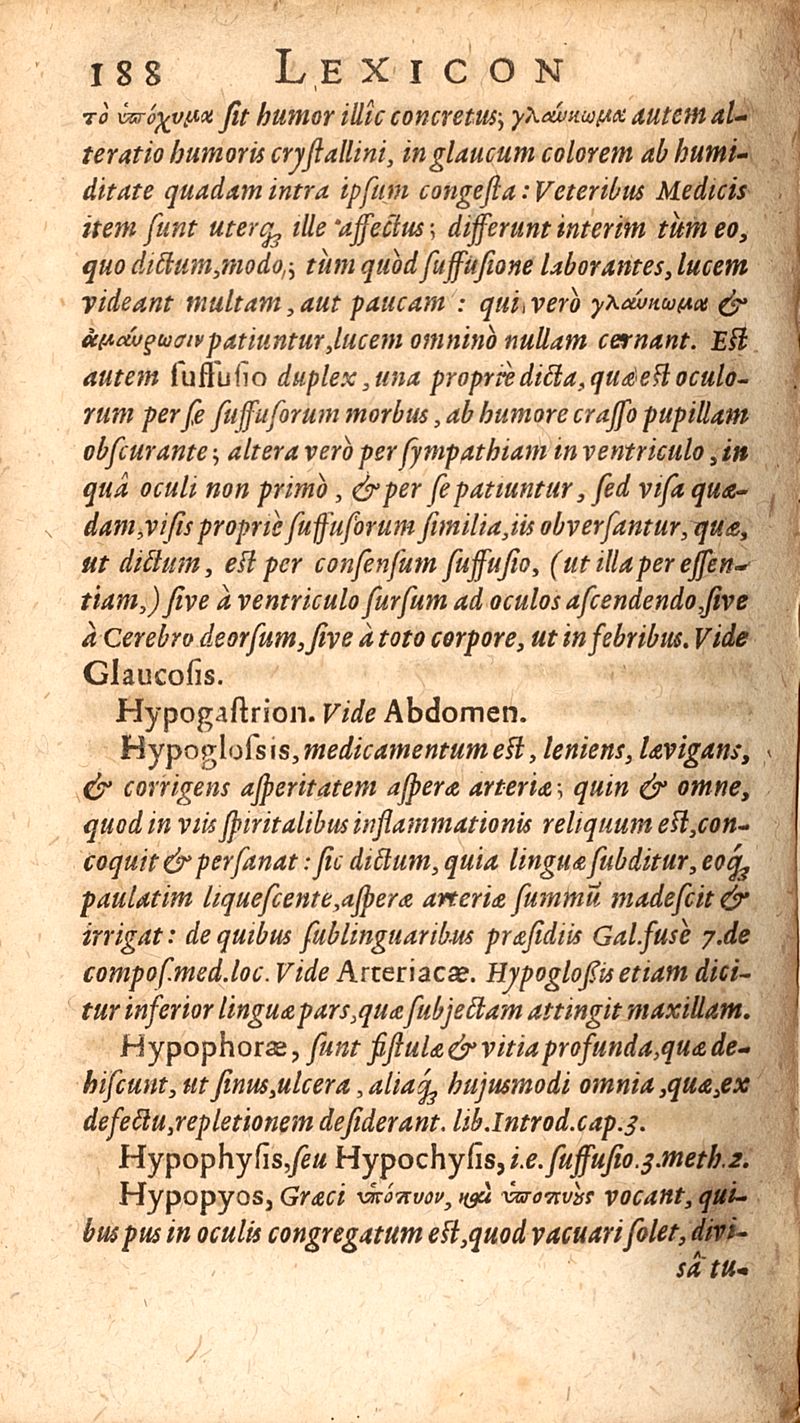 188 LEXICON
τὸ ὑπόχυμα ſit humor illîc concretus; γλαύκωμα autem al-
teratio humoris cryſtallini, in glaucum colorem ab humi-
ditate quadam intra ipſum congeſta: Veteribus Medicis
item ſunt uterq; ille affectus; differunt interim tùm eo,
quo dictum, modo,; tùm quòd ſuffuſione laborantes, lucem
videant multam, aut paucam: qui verò γλαύκωμα &
ἀμαύρωσιν patiuntur, lucem omninò nullam cernant. Eſt
autem ſuffuſio duplex, una propriè dicta, quæ eſt oculo-
rum per ſe ſuffuſorum morbus, ab humore craſſo pupillam
obſcurante; altera verò per ſympathiam in ventriculo, in
quâ oculi non primò, & per ſe patiuntur, ſed viſa quæ-
dam, viſis propriè ſuffuſorum ſimilia, iis obverſantur, quæ,
ut dictum, eſt per conſenſum ſuffuſio, (ut illa per eſſen-
tiam,) ſive à ventriculo ſurſum ad oculos aſcendendo, ſive
à Cerebro deorſum, ſive à toto corpore, ut in febribus. Vide
Glaucoſis.
Hypogaſtrion. Vide Abdomen.
Hypogloſsis, medicamentum eſt, leniens, lævigans,
& corrigens aſperitatem aſperæ arteriæ; quin & omne,
quod in viis ſpiritalibus inflammationis reliquum eſt, con-
coquit & perſanat: ſic dictum, quia linguæ ſubditur, eoq́;
paulatim liqueſcente, aſperæ arteriæ ſummū madeſcit &
irrigat: de quibus ſublinguaribus præſidiis Gal. fusè 7. de
compoſ. med. loc. Vide Arteriacæ. Hypogloſſis etiam dici-
tur inferior linguæ pars, quæ ſubjectam attingit maxillam.
Hypophoræ, ſunt fiſtulæ & vitia profunda, quæ de-
hiſcunt, ut ſinus, ulcera, aliaq́; hujusmodi omnia, quæ, ex
defectu, repletionem deſiderant. lib. Introd. cap. 3.
Hypophyſis, ſeu Hypochyſis, i.e. ſuffuſio. 3. meth. 2.
Hypopyos, Græci ὑπόπυον, καὶ ὑποπύȣς vocant, qui-
bus pus in oculis congregatum eſt, quod vacuari ſolet, divi-
sâ tu-